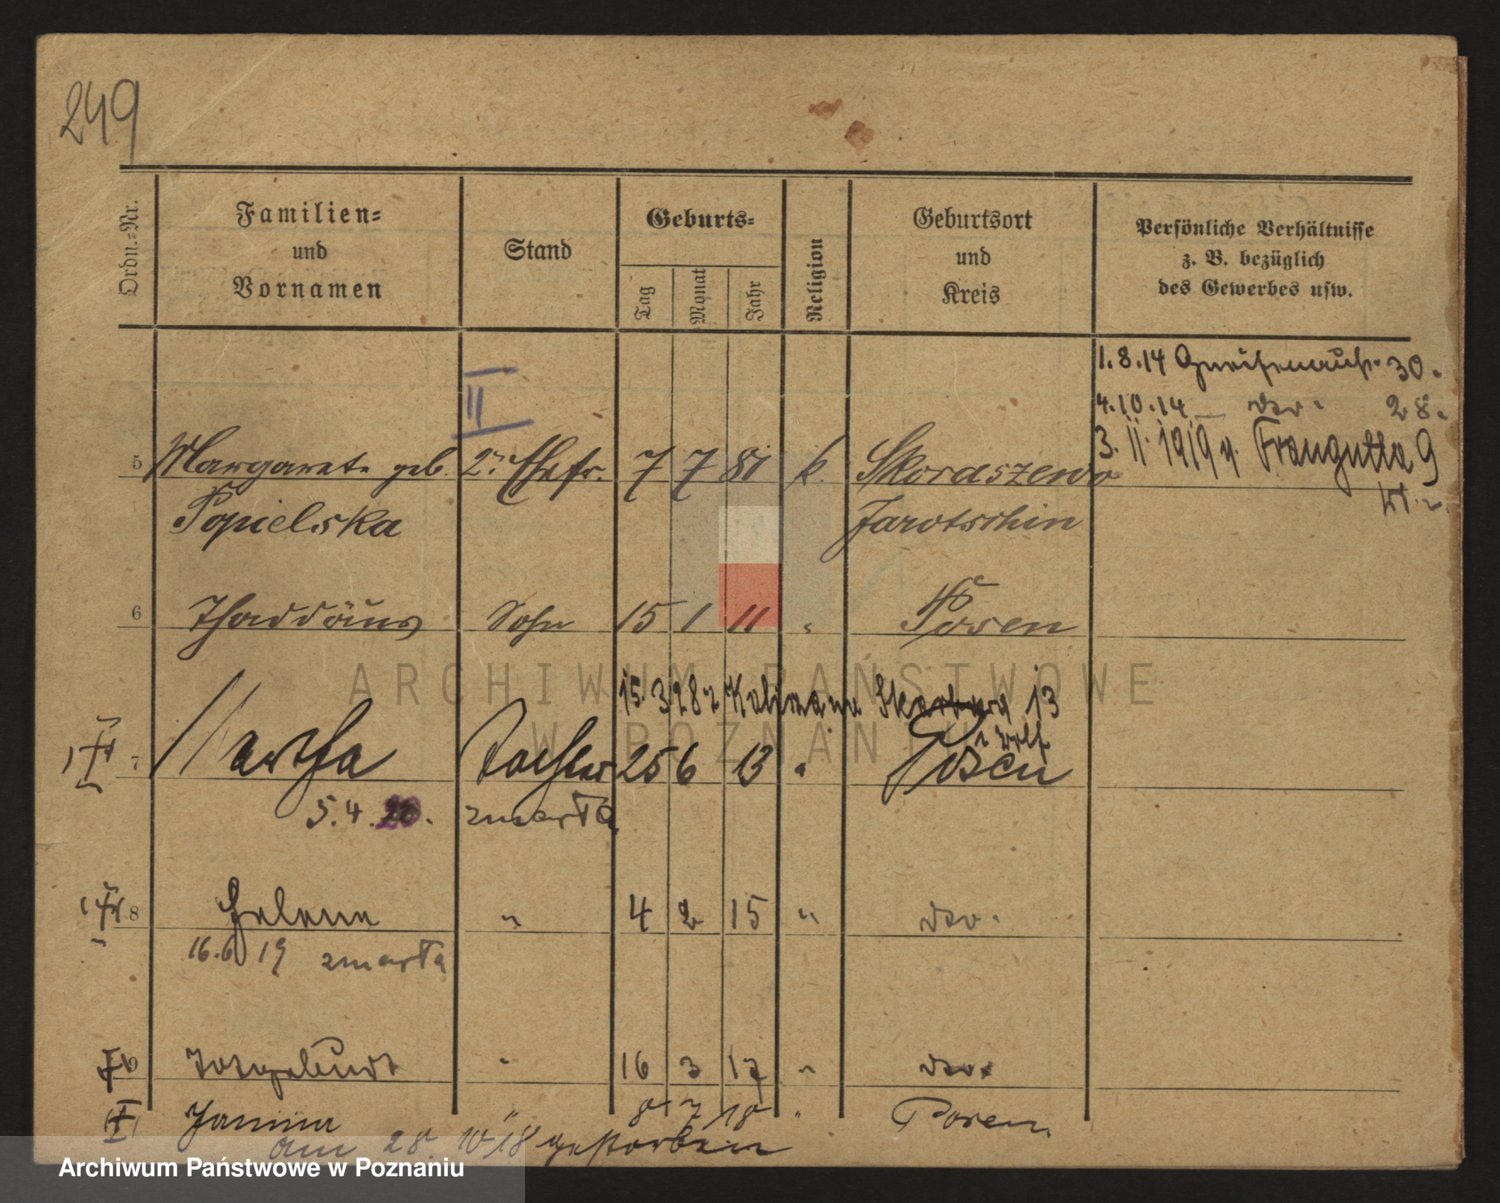 249
Ordn.-Nr.
Familien-
und
Vornamen
Stand
Geburts-
Tag
Monat
Jahr
Religion
Geburtsort
und
Kreis
Persönliche Verhältnisse
z. B. bezüglich
des Gewerbes usw.
1.8.14 Gneisenaustr. 30.
4.10.14 — do. 28.
3. 11. 1919 Traugutta 9
II
5 Margarete geb. 2te Ehefr. 7 7 81 k. Skoraszewo
Popielska Jarotschin
6 Thaddäus Sohn 15 1 11 " Posen
15. 3 28 z 13
7 Martha Tochter 25 6 13 " Posen
5.4.20. zmarła
8 Helena " 4 2 15 " do.
16.6 19 zmarła
9 Totgeburt " 16 3 17 " do.
Janina " 8 7 18 " Posen
am 28. 10 18 gestorben
ARCHIWUM PAŃSTWOWE
W POZNANIU
Archiwum Państwowe w Poznaniu